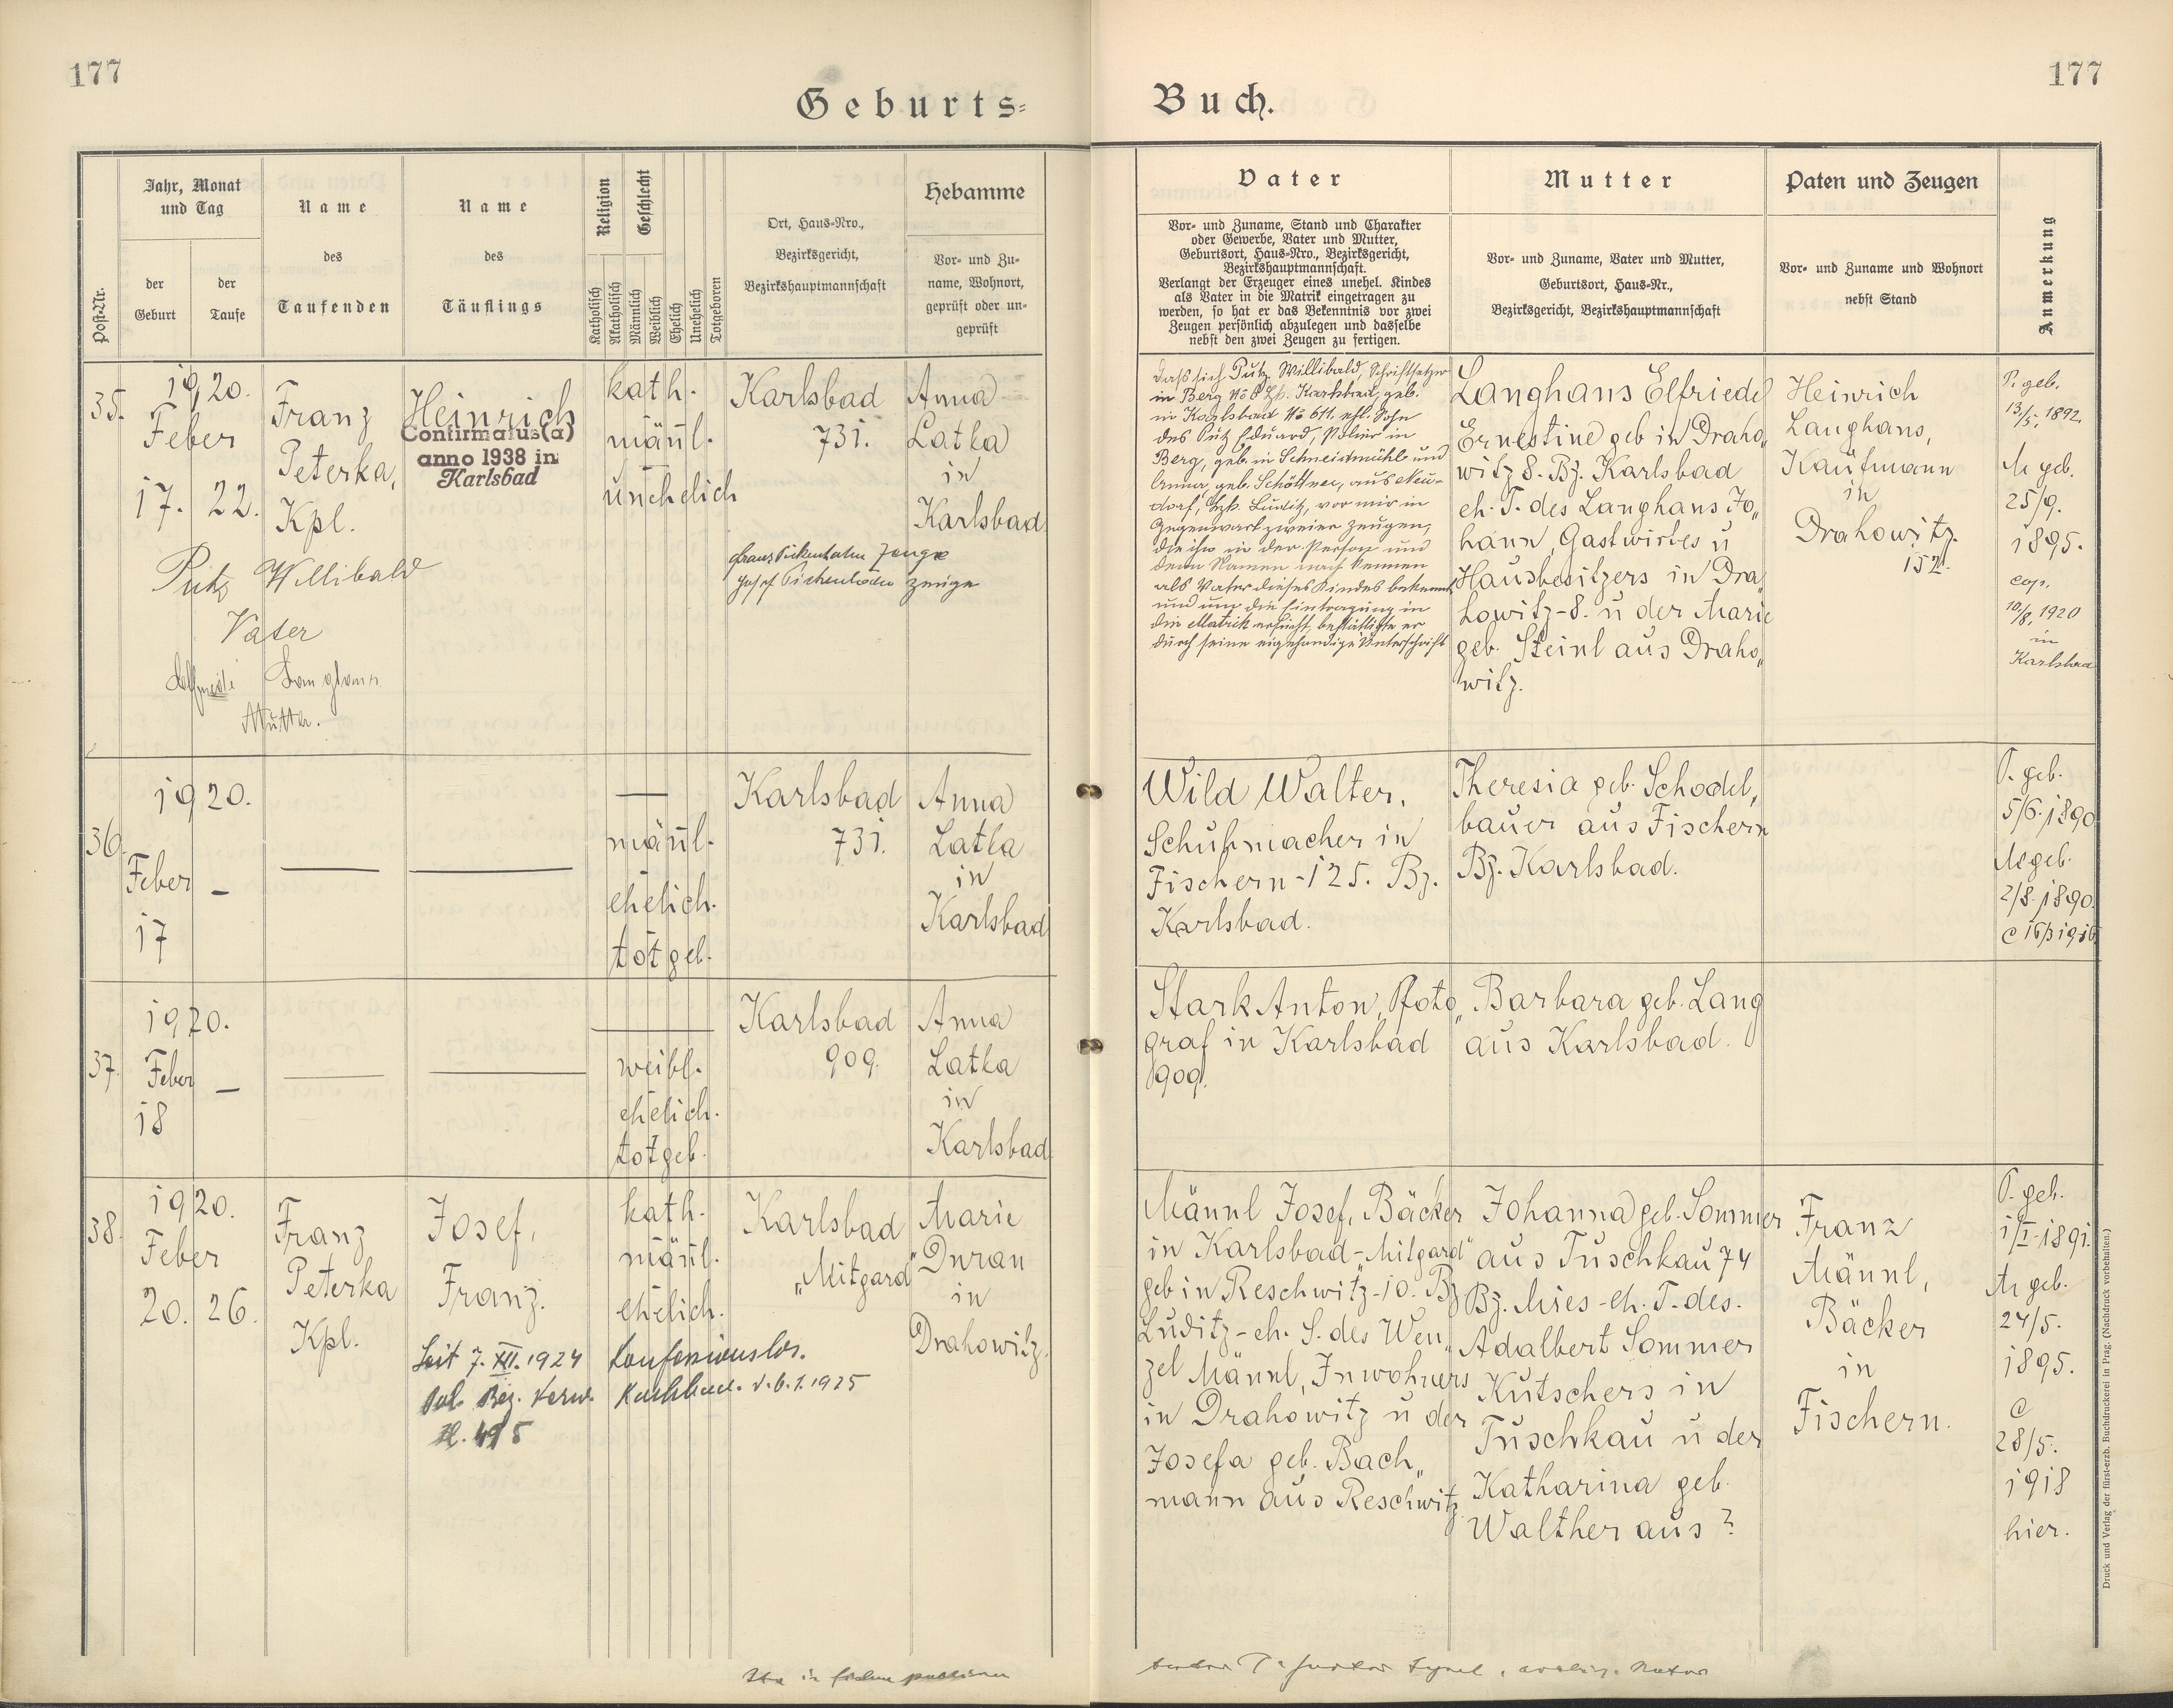 177
177
Geburts=
Buch.
Post-Nr.
Jahr, Monat
und Tag
der
Geburt
der
Taufe
Name
des
Taufenden
Name
des
Täuflings
Religion
Geschlecht
Katholisch
Akatholisch
Männlich
Weiblich
Ehelich
Unehelich
Totgeboren
Ort, Haus-Nro.,
Bezirksgericht,
Bezirkshauptmannschaft
Hebamme
Vor- und Zu-
name, Wohnort,
geprüft oder un-
geprüft
Vater
Vor- und Zuname, Stand und Charakter
oder Gewerbe, Vater und Mutter,
Geburtsort, Haus-Nro., Bezirksgericht,
Bezirkshauptmannschaft.
Verlangt der Erzeuger eines unehel. Kindes
als Vater in die Matrik eingetragen zu
werden, so hat er das Bekenntnis vor zwei
Zeugen persönlich abzulegen und dasselbe
nebst den zwei Zeugen zu fertigen.
Mutter
Vor- und Zuname, Vater und Mutter,
Geburtsort, Haus-Nr.,
Bezirksgericht, Bezirkshauptmannschaft
Paten und Zeugen
Vor- und Zuname und Wohnort
nebst Stand
Anmerkung
35.
1920.
Feber
17. 22.
Franz
Peterka,
Kpl.
Heinrich
Confirmatus(a)
anno 1938 in
Karlsbad
kath.
männl.
unehelich
Karlsbad
731.
Anna
Latka
in
Karlsbad
Putz Willibald
Vater
Mutter.
Zeuge
Zeuge
Daß sich Putz Willibald, Schriftsetzer
in Berg No 8 Karlsbad, geb.
in Karlsbad No 611. ehl. Sohn
des Putz Eduard, Polier in
Berg, geb. in Schneidmühl und
Anna, geb. Schöttner, aus Neu-
dorf, Luditz, vor mir in
Gegenwart zweier Zeugen,
die ihn in der Person und
dem Namen nach kennen
als Vater dieses Kindes bekennt
und um die Eintragung in
die Matrik ersucht, bestättigte er
durch seine eigenhändige Unterschrift
Langhans Elfriede
Ernestine geb in Draho„
witz 8. Bz. Karlsbad
eh. T. des Langhans Jo„
hann, Gastwirtes u
Hausbesitzers in Dra„
howitz-8. u der Marie
geb. Steinl aus Draho„
witz.
Heinrich
Langhans,
Kaufmann
in
Drahowitz.
152.
P. geb.
13/5. 1892.
M geb.
25/9.
1895.
cop.
10/8. 1920
in
Karlsbad
36.
1920.
Feber –
17
männl.
ehelich.
totgeb.
Karlsbad
731.
Anna
Latka
in
Karlsbad
Wild Walter,
Schuhmacher in
Fischern-125. Bz.
Karlsbad.
Theresia geb. Schodl„
bauer aus Fischern
Bz. Karlsbad.
P. geb.
5/6. 1890
M geb.
2/8. 1890.
37.
1920.
Feber –
18
weibl.
ehelich.
totgeb.
Karlsbad
909.
Anna
Latka
in
Karlsbad
Stark Anton, Foto„
graf in Karlsbad
909.
Barbara geb. Lang
aus Karlsbad.
38.
1920.
Feber
20. 26.
Franz
Peterka
Kpl.
Josef,
Franz.
kath.
männl.
ehelich.
Karlsbad
„Mitgard"
Marie
Duran
in
Drahowitz.
Seit 7. XII. 1924 konfessionslos.
Pol. Bez. Verw. Karlsbad. v. 6.1.1925
Zl. 495
Männl Josef, Bäcker
in Karlsbad-„Mitgard"
geb in Reschwitz-10. Bz
Luditz-eh. S. des Wen„
zel Männl, Inwohners
in Drahowitz u der
Josefa geb. Bach„
mann aus Reschwitz.
Johanna geb. Sommer
aus Tuschkau 74
Bz. Mies-eh. T. des.
Adalbert Sommer
Kutschers in
Tuschkau u der
Katharina geb.
Walther aus ?
Franz
Männl,
Bäcker
in
Fischern.
P. geb.
1/I-1891.
M geb.
24/5.
1895.
C
28/5.
1918
hier.
Druck und Verlag der fürst-erzb. Buchdruckerei in Prag. (Nachdruck vorbehalten.)